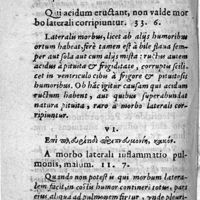 Qui acidum eructant, non valde mor
bo laterali corripiuntur. 33. 6.
Lateralis morbus, licet ab alijs humoribus
ortum habeat, ferè tamen est à bile flaua sem-
per aut sola aut cum alijs mista: ructus autem
acidus à pituita & frigiditate, corruptis scili-
cet in ventriculo cibis à frigore & pituitosis
humoribus. Ob hāc igitur causam qui acidum
eructant habent, aut quibus superabundat
natura pituita, raro à morbo laterali corri-
piuntur.
VI.
κακόν.
A morbo laterali inflammatio pul-
monis, malum. 11. 7.
Quando non potest is qui morbum latera-
lem facit, in costis humor contineri totus, pars
eius aliqua ad pulmonem fertur, vnde pleuri-